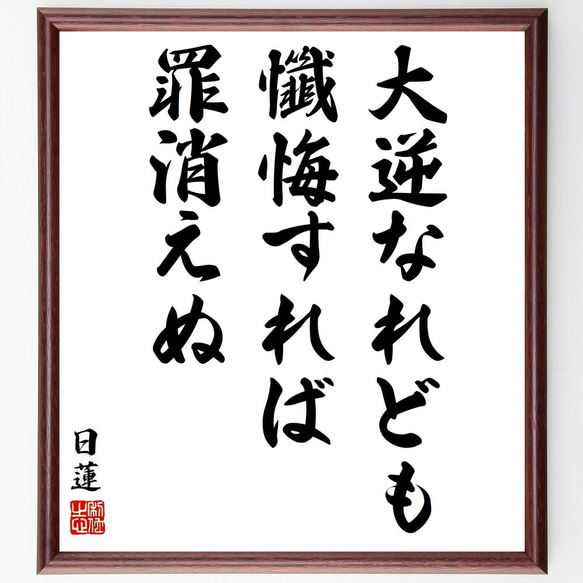 大逆なれども
懺悔すれば
罪消えぬ
日蓮